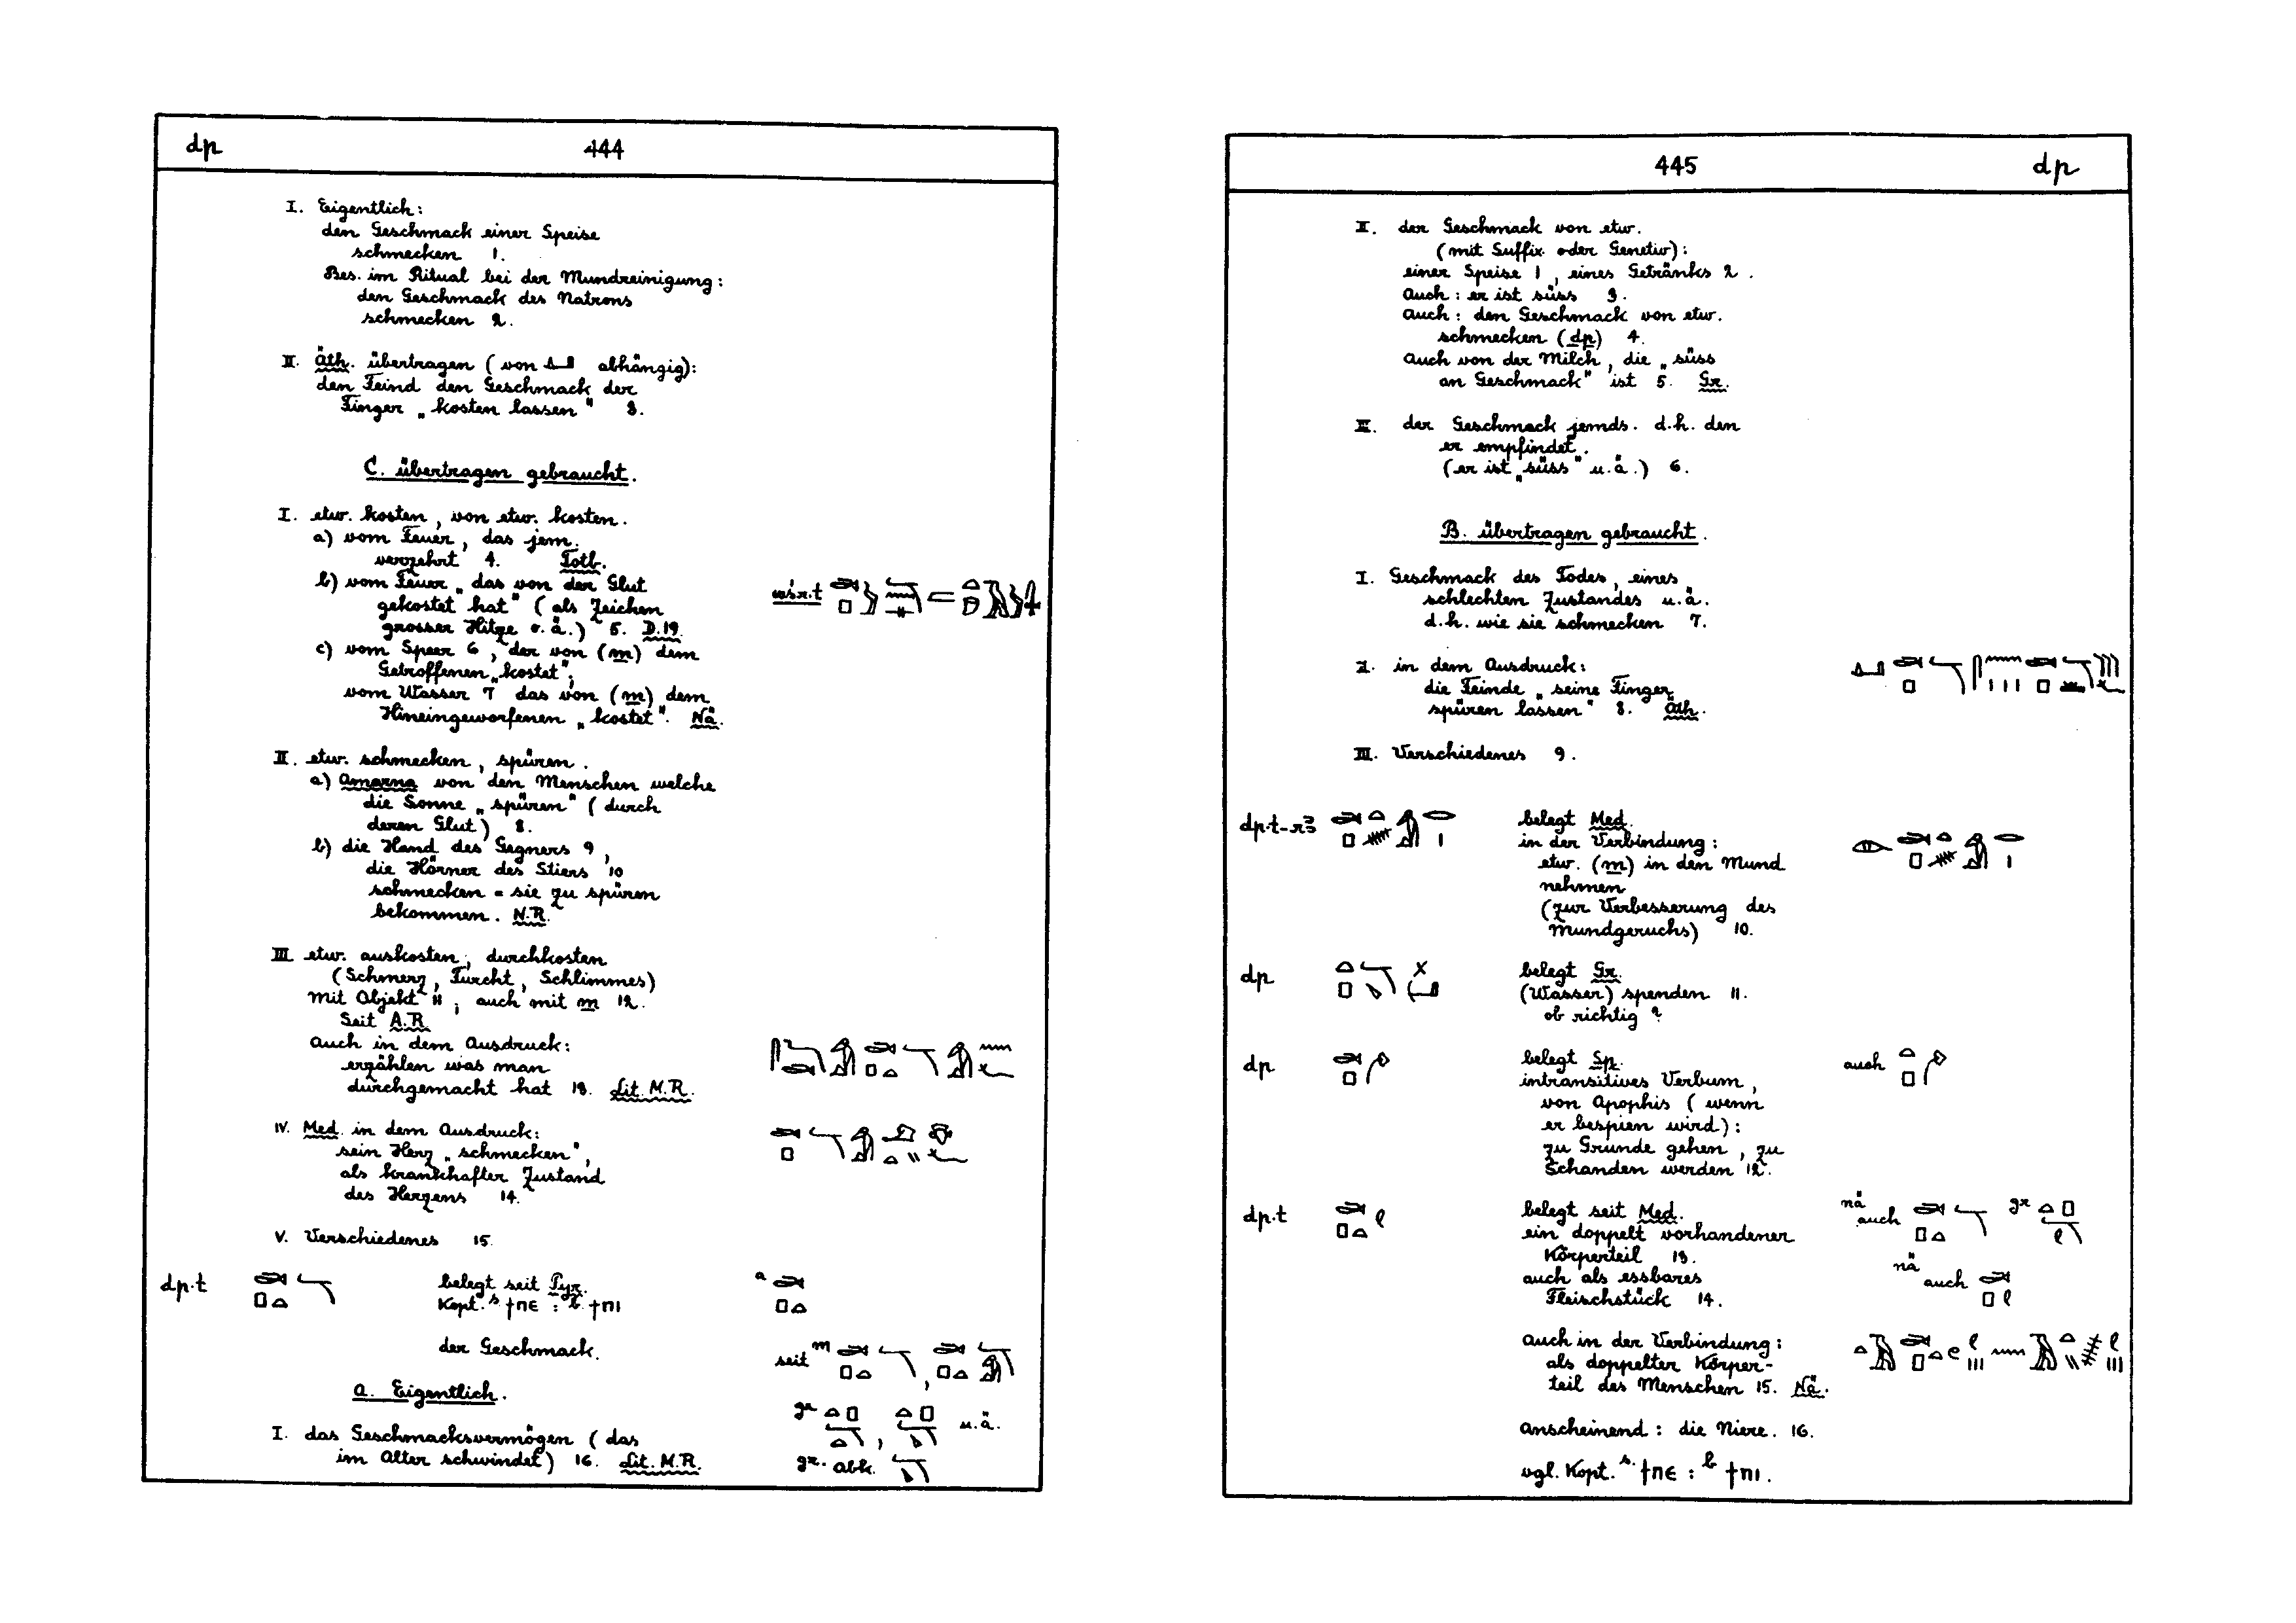 dp 444
I. Eigentlich:
den Geschmack einer Speise
schmecken 1.
Bes. im Ritual bei der Mundreinigung:
den Geschmack des Natrons
schmecken 2.
II. Äth. übertragen (von abhängig):
den Feind den Geschmack der
Finger „kosten lassen" 3.
C. übertragen gebraucht.
I. etw. kosten, von etw. kosten.
a) vom Feuer, das jem.
verzehrt 4. Totb.
b) vom Feuer „das von der Glut
gekostet hat" (als Zeichen
grosser Hitze o.ä.) 5. D.19.
c) vom Speer 6, der von (m) dem
Getroffenen „kostet";
vom Wasser 7 das von (m) dem
Hineingeworfenen „kostet". Nä.
II. etw. schmecken, spüren.
a) Amarna von den Menschen welche
die Sonne „spüren" (durch
deren Glut) 8.
b) die Hand des Gegners 9,
die Hörner des Stiers 10
schmecken = sie zu spüren
bekommen. N.R.
III. etw. auskosten, durchkosten
(Schmerz, Furcht, Schlimmes)
mit Objekt 11; auch mit m 12.
Seit A.R.
auch in dem Ausdruck:
erzählen was man
durchgemacht hat 13. Lit. M.R.
IV. Med. in dem Ausdruck:
sein Herz „schmecken",
als krankhafter Zustand
des Herzens 14.
V. Verschiedenes 15.
dp.t belegt seit Pyr.
Kopt. s ϯπε : b ϯπι
der Geschmack.
a
seit m
gr , u.ä.
gr. abk.
a. Eigentlich.
I. das Geschmacksvermögen (das
im Alter schwindet) 16. Lit. M.R.
445 dp
II. der Geschmack von etw.
(mit Suffix oder Genetiv):
einer Speise 1, eines Getränks 2.
auch: er ist süss 3.
auch: den Geschmack von etw.
schmecken (dp) 4.
auch von der Milch, die „süss
an Geschmack" ist 5. Gr.
III. der Geschmack jemds. d.h. den
er empfindet.
(er ist „süss" u.ä.) 6.
B. übertragen gebraucht.
I. Geschmack des Todes, eines
schlechten Zustandes u.ä.
d.h. wie sie schmecken 7.
2. in dem Ausdruck:
die Feinde „seine Finger
spüren lassen" 8. Äth.
III. Verschiedenes 9.
dp.t-r3 belegt Med.
in der Verbindung:
etw. (m) in den Mund
nehmen
(zur Verbesserung des
Mundgeruchs) 10.
dp belegt Gr.
(Wasser) spenden 11.
ob richtig?
dp belegt Sp. auch
intransitives Verbum,
von Apophis (wenn
er bespien wird):
zu Grunde gehen, zu
Schanden werden 12.
dp.t belegt seit Med. nä auch gr
ein doppelt vorhandener
Körperteil 13.
auch als essbares nä auch
Fleischstück 14.
auch in der Verbindung:
als doppelter Körper-
teil des Menschen 15. Nä.
anscheinend: die Niere. 16.
vgl. Kopt. s. ϯπε : b ϯπι.